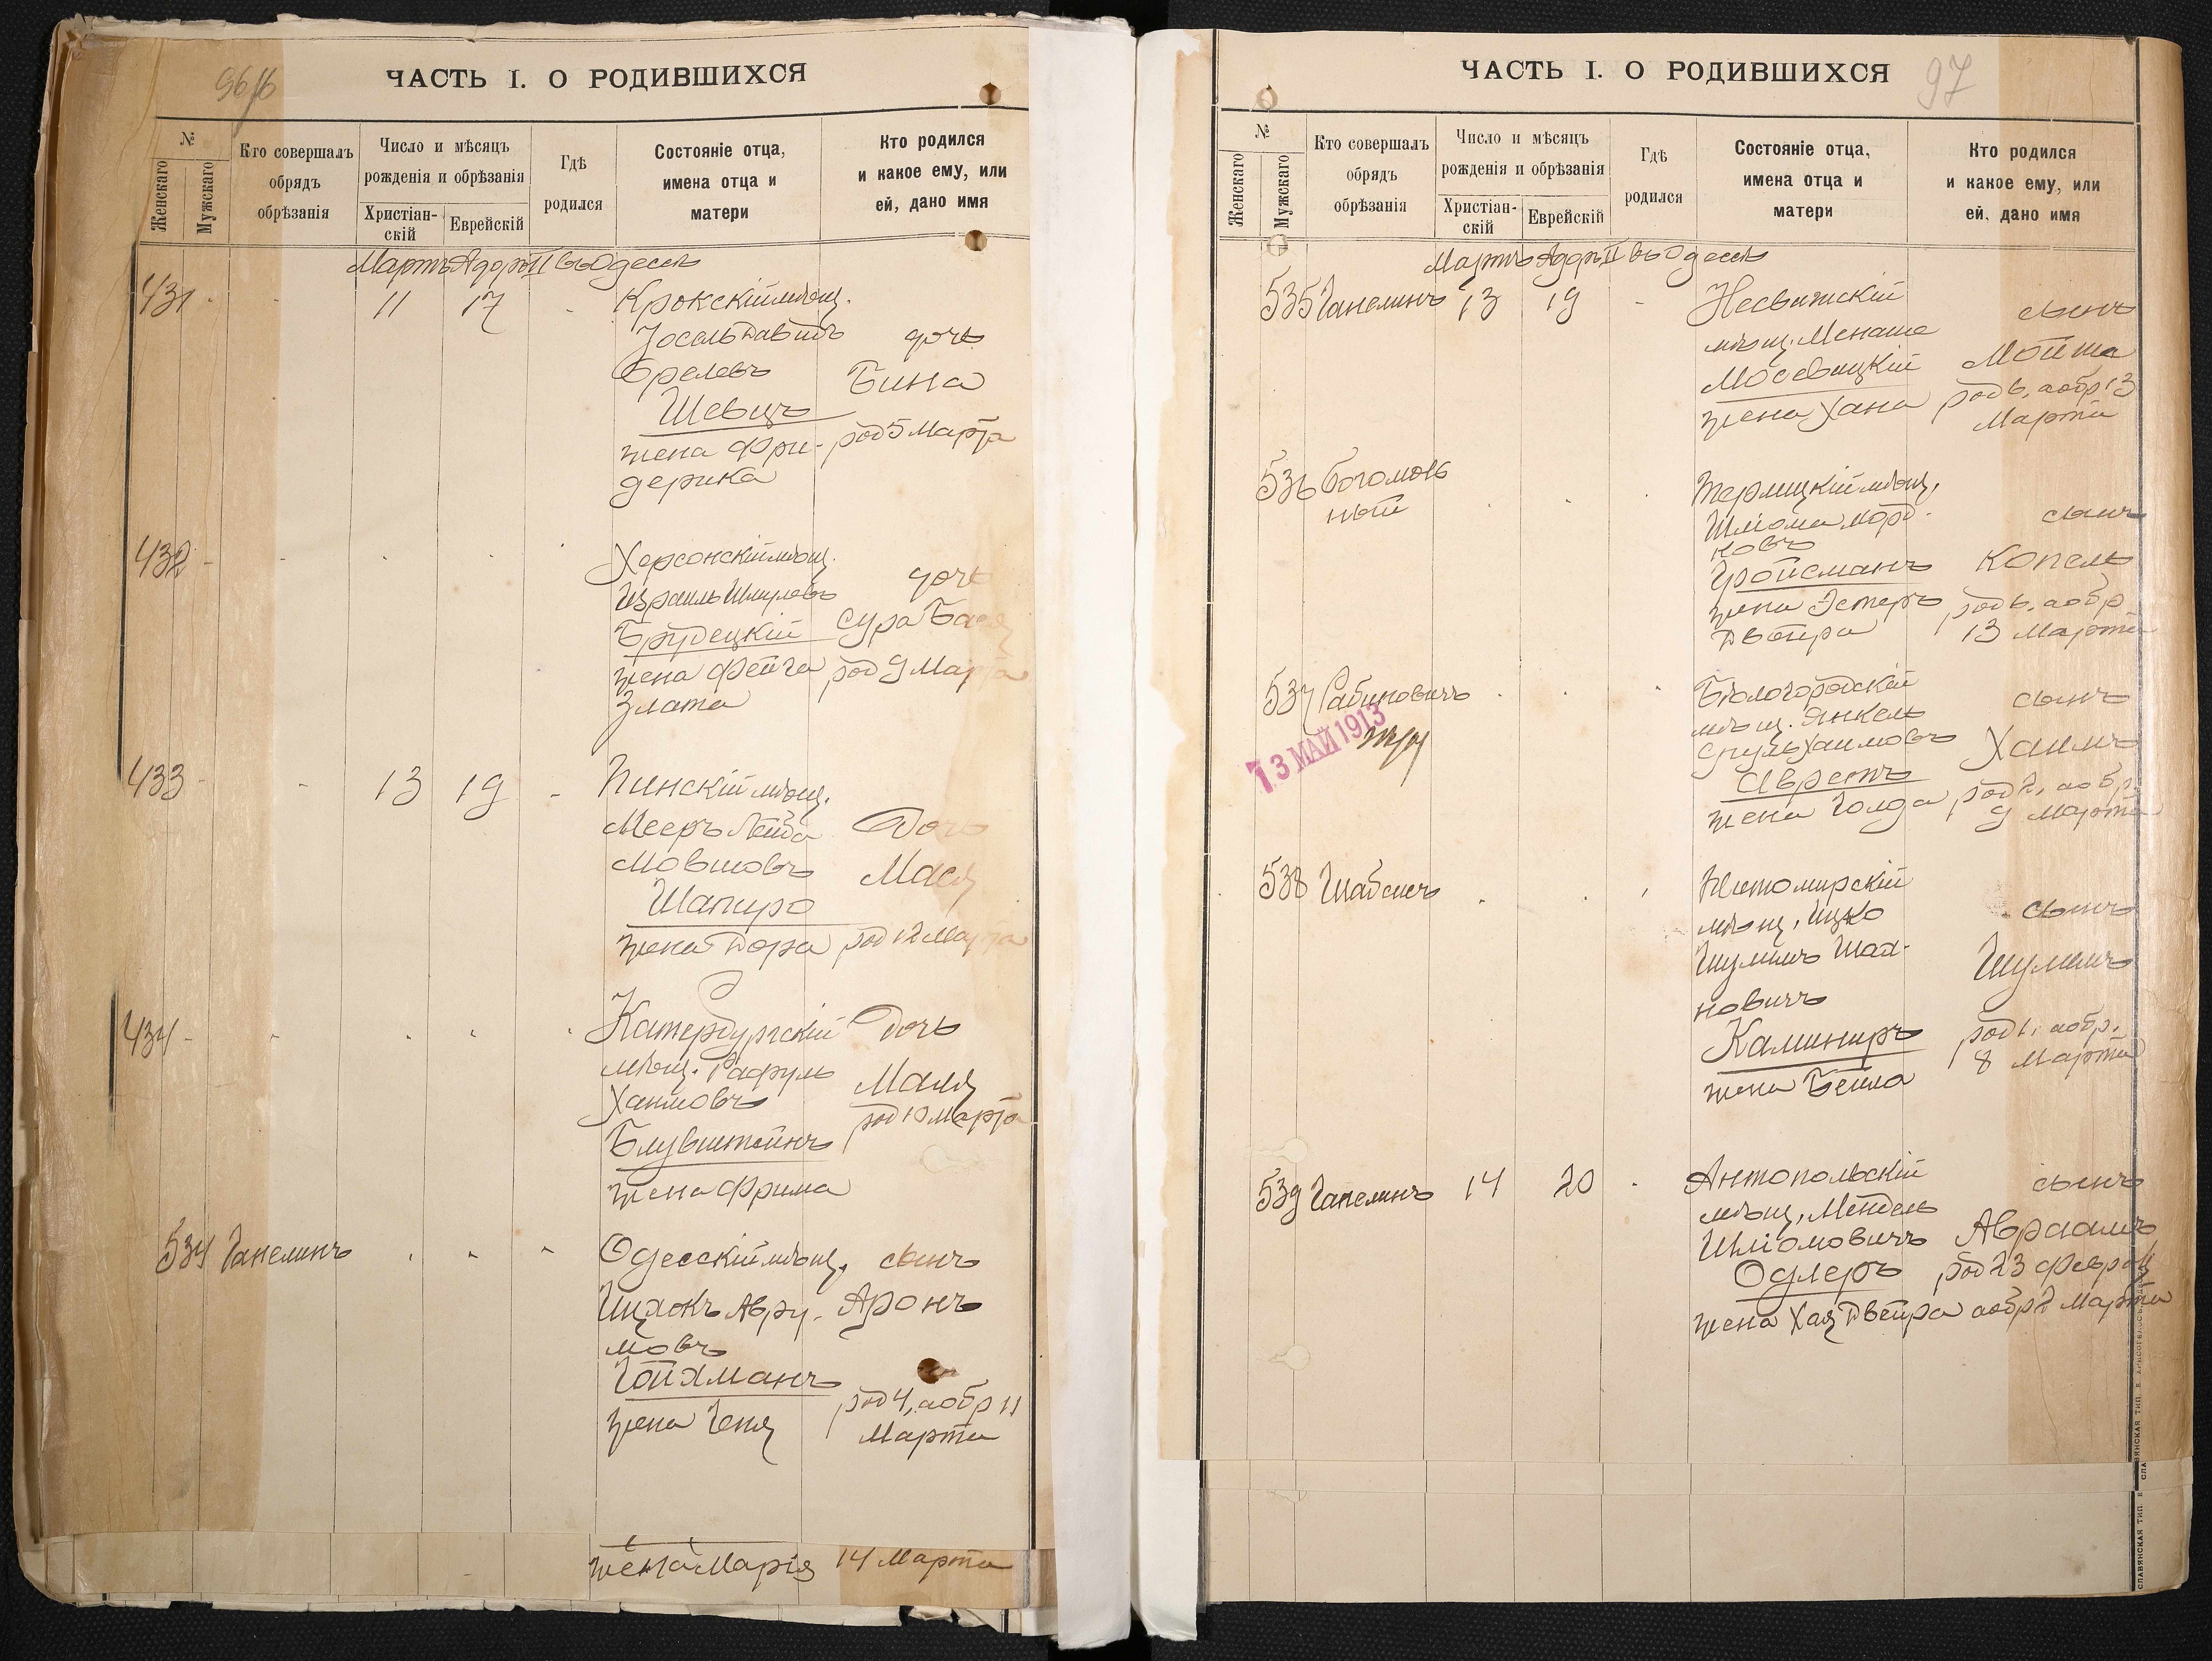 96/б
ЧАСТЬ I. О РОДИВШИХСЯ
№
Женскаго
Мужскаго
Кто совершалъ
обрядъ
обрѣзанія
Число и мѣсяцъ
рожденія и обрѣзанія
Христіан-
скій
Еврейскій
Гдѣ
родился
Состояніе отца,
имена отца и
матери
Кто родился
и какое ему, или
ей, дано имя
Мартъ Адоръ II въ Одессѣ
431 11 17 Крокскій мѣщ.
Іосель Давидъ дочь
Бина
Шевицъ
жена Фри- род 5 Марта
дерика
432 Херсонскій мѣщ.
Израиль Шмулевъ дочь
Брудецкій Сура Бася
жена Фейга род 9 Марта
Злата
433 13 19 Пинскій мѣщ.
Мееръ Лейба Дочь
Мовшовъ Мася
Шапиро
жена Дора род 12 Марта
434 Катербургскій Дочь
мѣщ. Рафуль Маля
Хаимовъ род 10 Марта
Блувштейнъ
жена Фрима
534 Гапелинъ Одесскій мѣщ. сынъ
Ицхокъ Авру- Аронъ
мовъ
Гойхманъ
жена Геня род 4, а обр 11
Марта
жена Марія 14 Марта
97
ЧАСТЬ I. О РОДИВШИХСЯ
№
Женскаго
Мужскаго
Кто совершалъ
обрядъ
обрѣзанія
Число и мѣсяцъ
рожденія и обрѣзанія
Христіан-
скій
Еврейскій
Гдѣ
родился
Состояніе отца,
имена отца и
матери
Кто родился
и какое ему, или
ей, дано имя
Мартъ Адоръ II въ Одессѣ
535 Гапелинъ 13 19 Несвижскій сынъ
мѣщ. Менаше Мойша
Мосевицкій род 6, а обр 13
жена Хана Марта
536 Богомоль
ный
мѣщ.
Шліома Морд- сынъ
ковъ
Гройсманъ Копель
жена Эстеръ род 6, а обр
Двойра 13 Марта
537 Рабиновичъ Бѣлогородскій сынъ
мѣщ. Янкель
Сруль Хаимовъ Хаимъ
жена Голда род 2, а обр.
9 Марта
13 МАЙ 1913
538 Шабсисъ Житомирскій
мѣщ. Ицко сынъ
Шулимъ Шая-
новичъ Шулимъ
Каминиръ род 1, а обр.
жена Бейла 8 Марта
539 Гапелинъ 14 20 Антопольскій сынъ
мѣщ. Мендель
Шліомовичъ Авраамъ
Одлеръ род 23 Февраля
жена Хая Двейра а обр 2 Марта
СЛАВЯНСКАЯ ТИП. Е